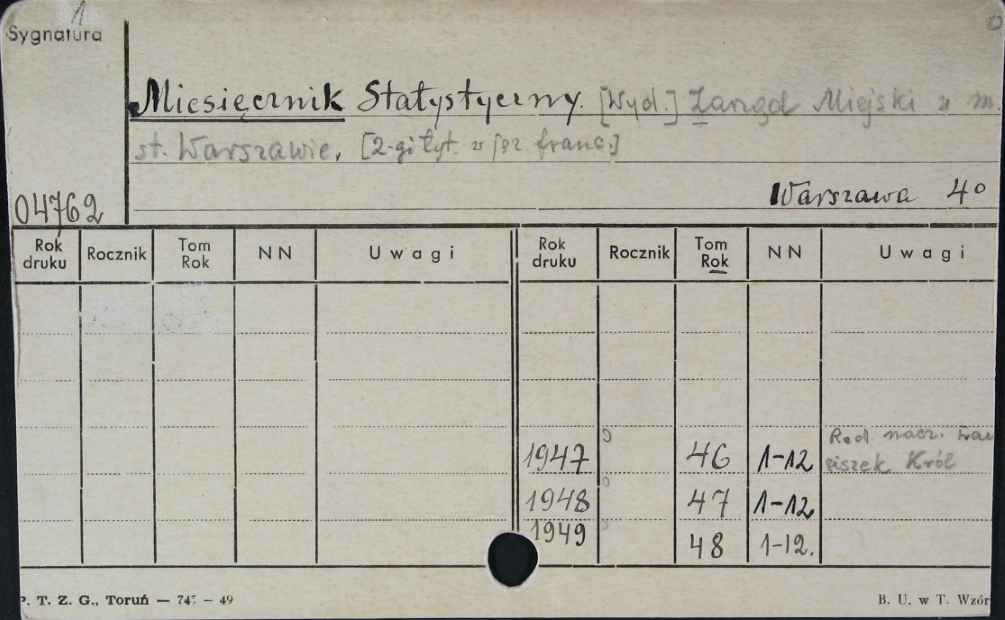 1
Sygnatura
Miesięcznik Statystyczny. [Wyd.] Zarząd Miejski w m.
st. Warszawie. [2-gi tyt. w jęz. franc.]
Warszawa 4°
04762
Rok druku Rocznik Tom Rok NN Uwagi Rok druku Rocznik Tom Rok NN Uwagi
1947 46 1-12 Red nacz. Fran
ciszek Król
1948 47 1-12
1949 48 1-12.
P. T. Z. G., Toruń — 49 B. U. w T. Wzór